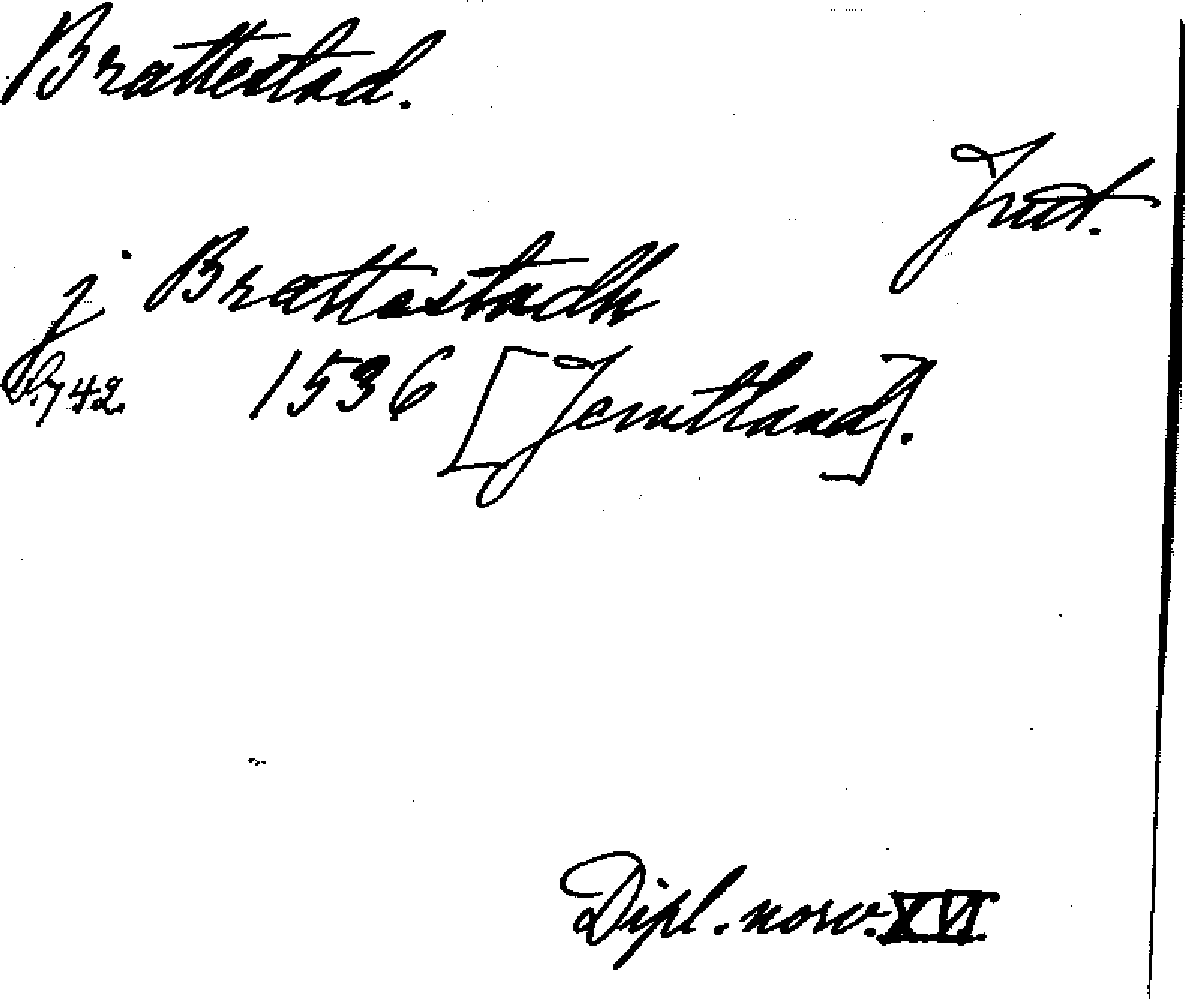 Brattestad.
Jmt.
j Brattastadh
S. 742. 1536 [Jemtland].
Dipl. norv. XVI